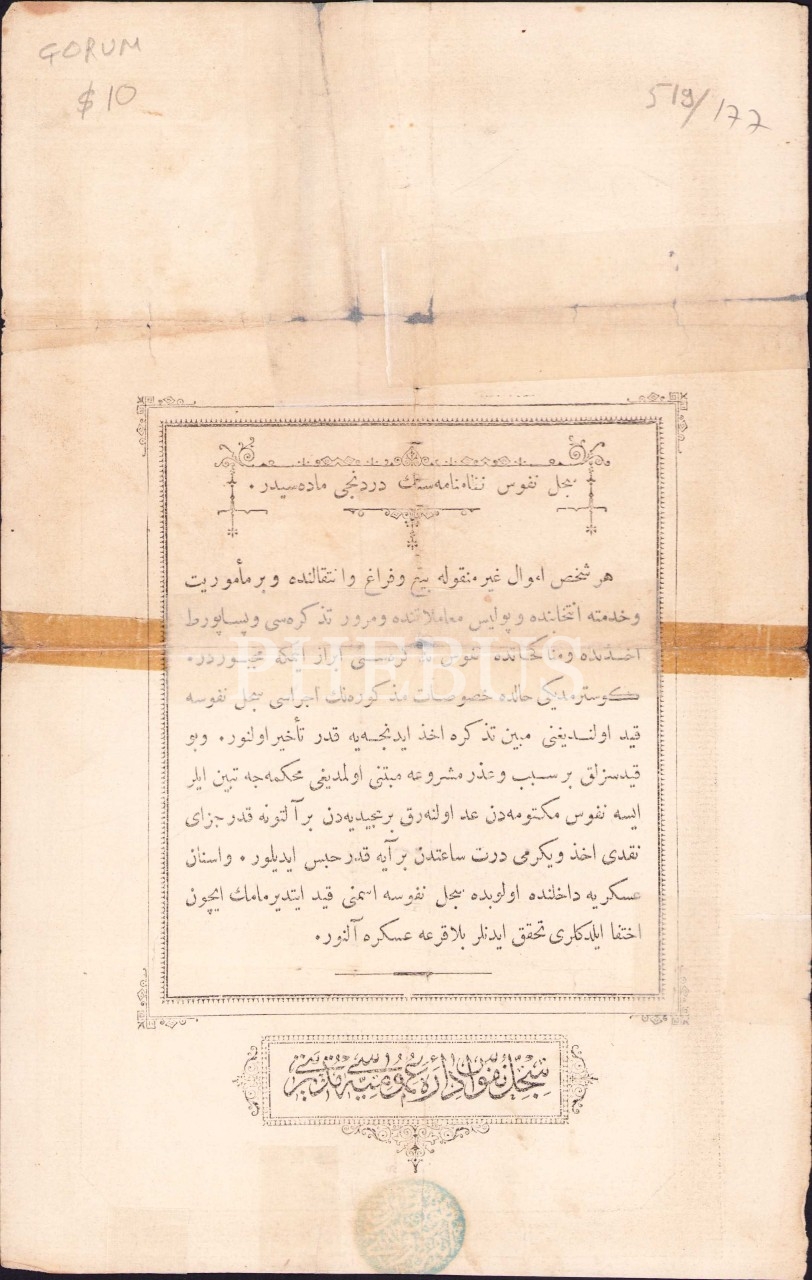 GORUM
$10
519/177
سجل نفوس نظامنامه‌سنك دردنجی ماده‌سیدر ٠
هر شخص اموال غیر منقوله بیع وفراغ وانتقالنده وبر مأموریت
وخدمته انتخابنده وپولیس معاملاتنده ومرور تذكره‌سی وپساپورط
اخذنده ومناكحاتده نفوس تذكره‌سنی ابراز ایتمكه مجبوردر ٠
كوسترمدیكی حالده خصوصات مذكوره‌نك اجراسی سجل نفوسه
قید اولندیغنی مبین تذكره اخذ ایدنجه‌یه قدر تأخیر اولنور ٠ وبو
قیدسزلق بر سبب وعذر مشروعه مبتنی اولمدیغی محكمه‌جه تبین ایلر
ایسه نفوس مكتومه‌دن عد اولنه‌رق بر مجیدیه‌دن بر آلتونه قدر جزای
نقدی اخذ ویكرمی درت ساعتدن بر آیه قدر حبس ایدیلور ٠ واسنان
عسكریه داخلنده اولوبده سجل نفوسه اسمنی قید ایتدیرمامك ایچون
اختفا ایلدكلری تحقق ایدنلر بلا قرعه عسكره آلنور ٠
سجل نفوس اداره عمومیه‌سی مدیریتی
PHEBUS